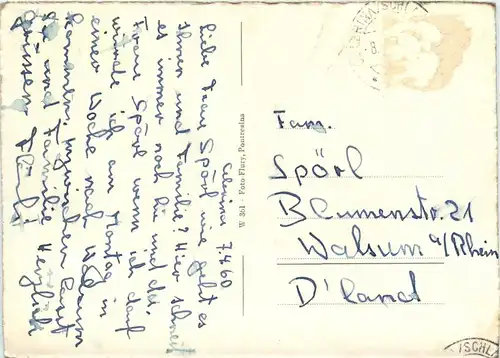 Celerina 7.4.60
Liebe Frau Spörl wie geht es
Ihnen und Familie? Hier schneit
es immer noch hie und da.
Frau Spörl wenn ich darf
würde ich am Montag in
einer Woche nach Walsum
kommen. inzwischen seit
Sie und Familie Herzlich
W 301 - Foto Flury, Pontresina
Fam.
Spörl
Blumenstr. 21
Walsum a/Rhein
D'land